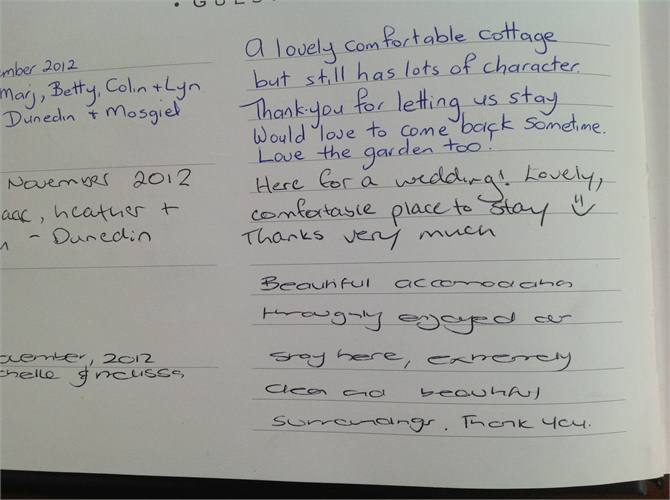 • GUES
mber 2012
Marj, Betty, Colin + Lyn
Dunedin + Mosgiel
A lovely comfortable cottage
but still has lots of character.
Thank-you for letting us stay
Would love to come back sometime.
Love the garden too!
November 2012
aac, heather +
n - Dunedin
Here for a wedding! Lovely,
comfortable place to stay
Thanks very much
vember, 2012
chelle &
Beautiful accomodation
enjoyed our
stay here, extremely
clean and beautiful
surroundings. Thank you.